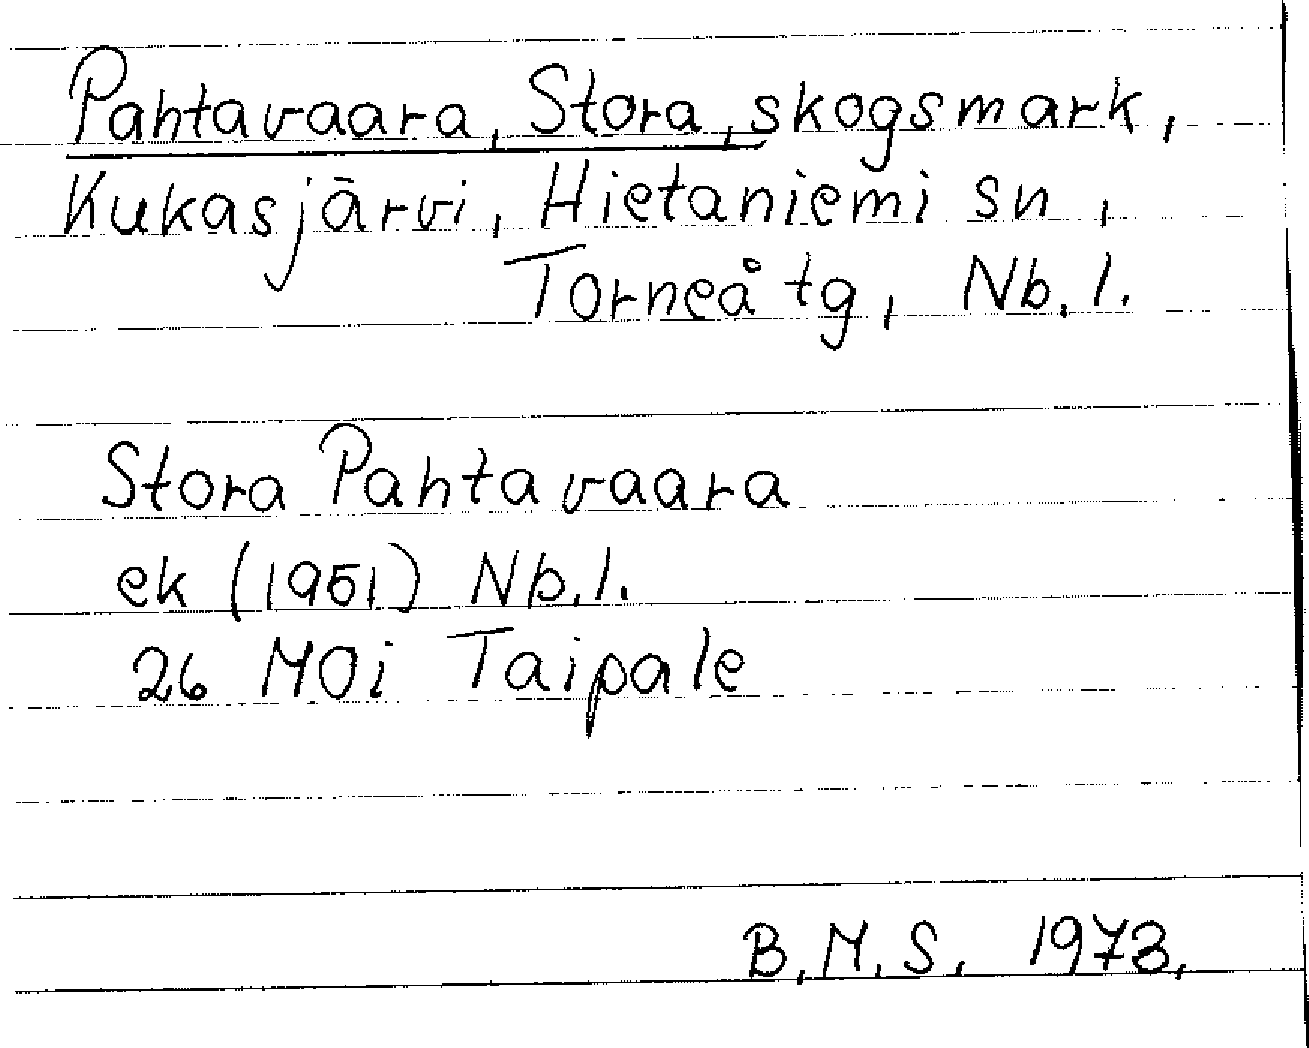 Pahtavaara, Stora, skogsmark,
Kukasjärvi, Hietaniemi sn,
Torneå tg, Nb. l.
Stora Pahtavaara
ek (1951) Nb. l.
26 MOi Taipale
B.M.S. 1973.